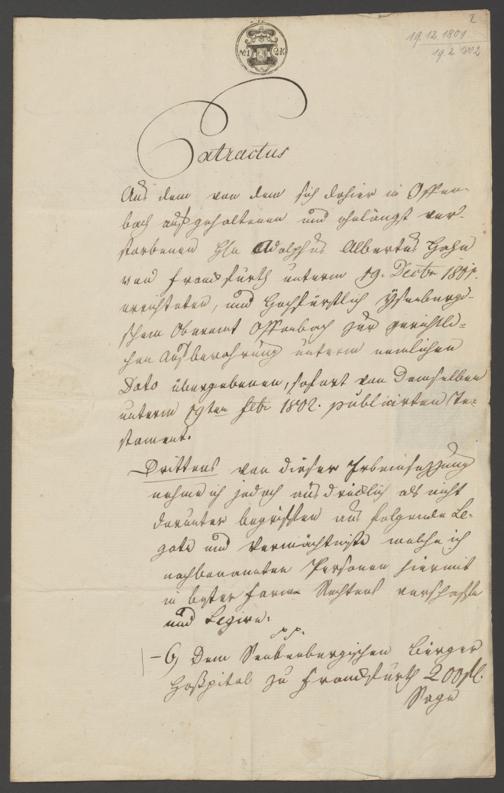 2
19.12.1801
19.2.1802
No 1 2K
Extractus
Aus dem von dem sich dahier in Offen-
bach aufgehaltenen und ohnlängst ver-
storbenen Hln Adolphus Albertus Hahn
von Franckfurth unterm 19. Decbr 1801.
errichteten, und Hochfürstlich Ysenburgi-
schem Oberamt Offenbach zur gerichtli-
chen Aufbewahrung unterm nemlichen
Dato übergebenen, sofort von Demselben
unterm 19ten Febr 1802. publicirten Te-
stament.
Drittens von dieser Erbeinsezzung
nehme ich jedoch ausdrücklich als nicht
darunter begriffen aus folgende Le-
gate und Vermächtniße welche ich
nachbenannten Personen hiermit
in bester Form Rechtens verschaffe
und Legire.
pp.
6, Dem Senkenbergischen Bürger
Hoßpital zu Franckfurth 200 fl.
Sage